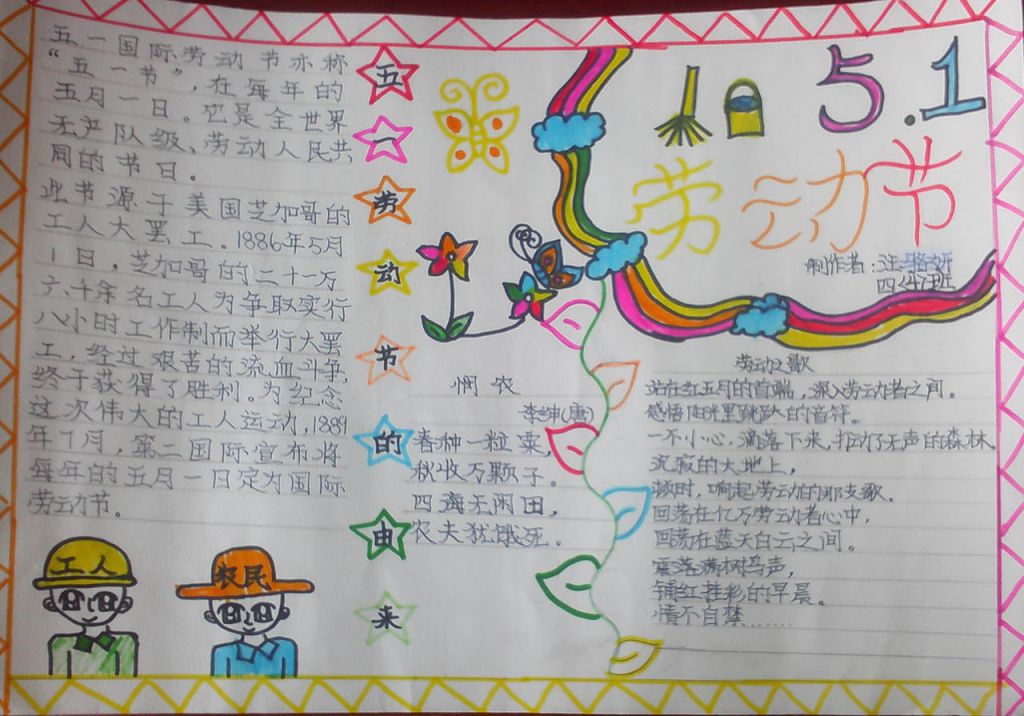 五一国际劳动节亦称
“五一节”，在每年的
五月一日。它是全世界
无产队级、劳动人民共
同的节日。
此节源于美国芝加哥的
工人大罢工。1886年5月
1日，芝加哥的二十一万
六千余名工人为争取实行
八小时工作制而举行大罢
工，经过艰苦的流血斗争，
终于获得了胜利。为纪念
这次伟大的工人运动，1889
年7月，第二国际宣布将
每年的五月一日定为国际
劳动节。
工人
农民
五一劳动节的由来
悯农
李绅(唐)
春种一粒粟，
秋收万颗子。
四海无闲田，
农夫犹饿死。
5.1
劳动节
制作者：汪
四(4)班
劳动之歌
站在红五月的首端，深入劳动者之间。
感悟阳光里跳跃的音符。
一不小心，滴落下来，打动了无声的森林
沉寂的大地上，
顿时，响起劳动的那支歌、
回荡在亿万劳动者心中，
回荡在蓝天白云之间。
震落满树鸟声，
铺红挂彩的早晨。
情不自禁……